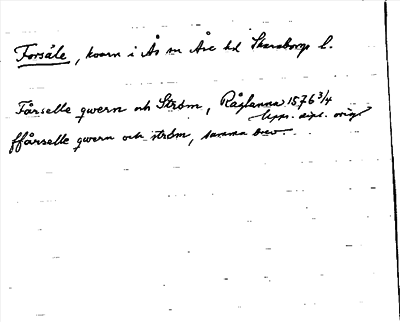 Forsåle, kvarn i Ås sn Åse hd Skaraborgs l.
Fårselle qwern och Ström, Råglanna 1576 3/4
Upps. dipl. orig
ffårselle qwern och ström, samma brev.